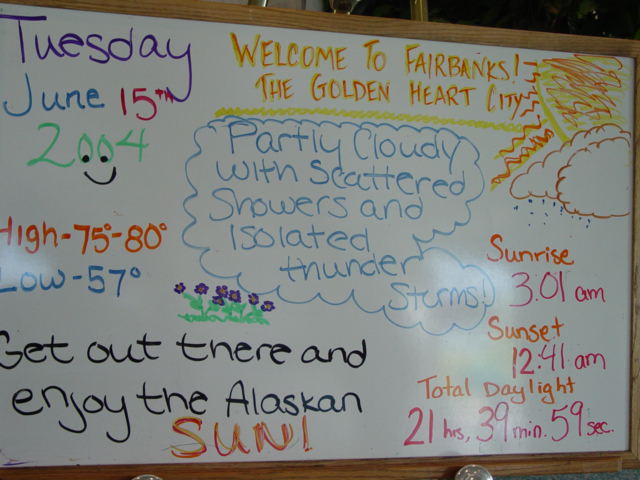 Tuesday
June 15TH
2004
WELCOME TO FAIRBANKS!
THE GOLDEN HEART CITY
Partly Cloudy
with Scattered
Showers and
Isolated
thunder
Storms!
High-75°-80°
Low-57°
Sunrise
3:01 am
Sunset
12:41 am
Total Daylight
21 hrs, 39 min. 59 sec.
Get out there and
enjoy the Alaskan
SUN!